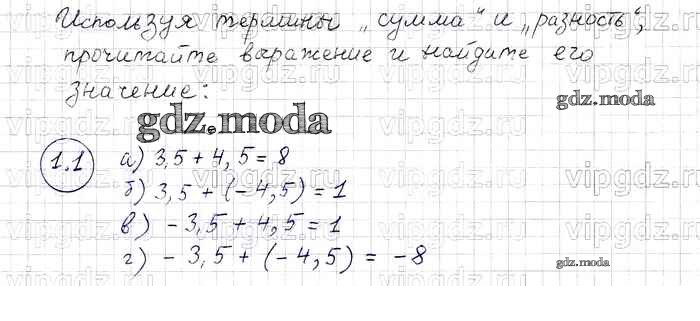 Используя термины „сумма“ и „разность“,
прочитайте выражение и найдите его
значение:
gdz.moda
gdz.moda
1.1
а) 3,5 + 4,5 = 8
б) 3,5 + (-4,5) = 1
в) -3,5 + 4,5 = 1
г) -3,5 + (-4,5) = -8
gdz.moda